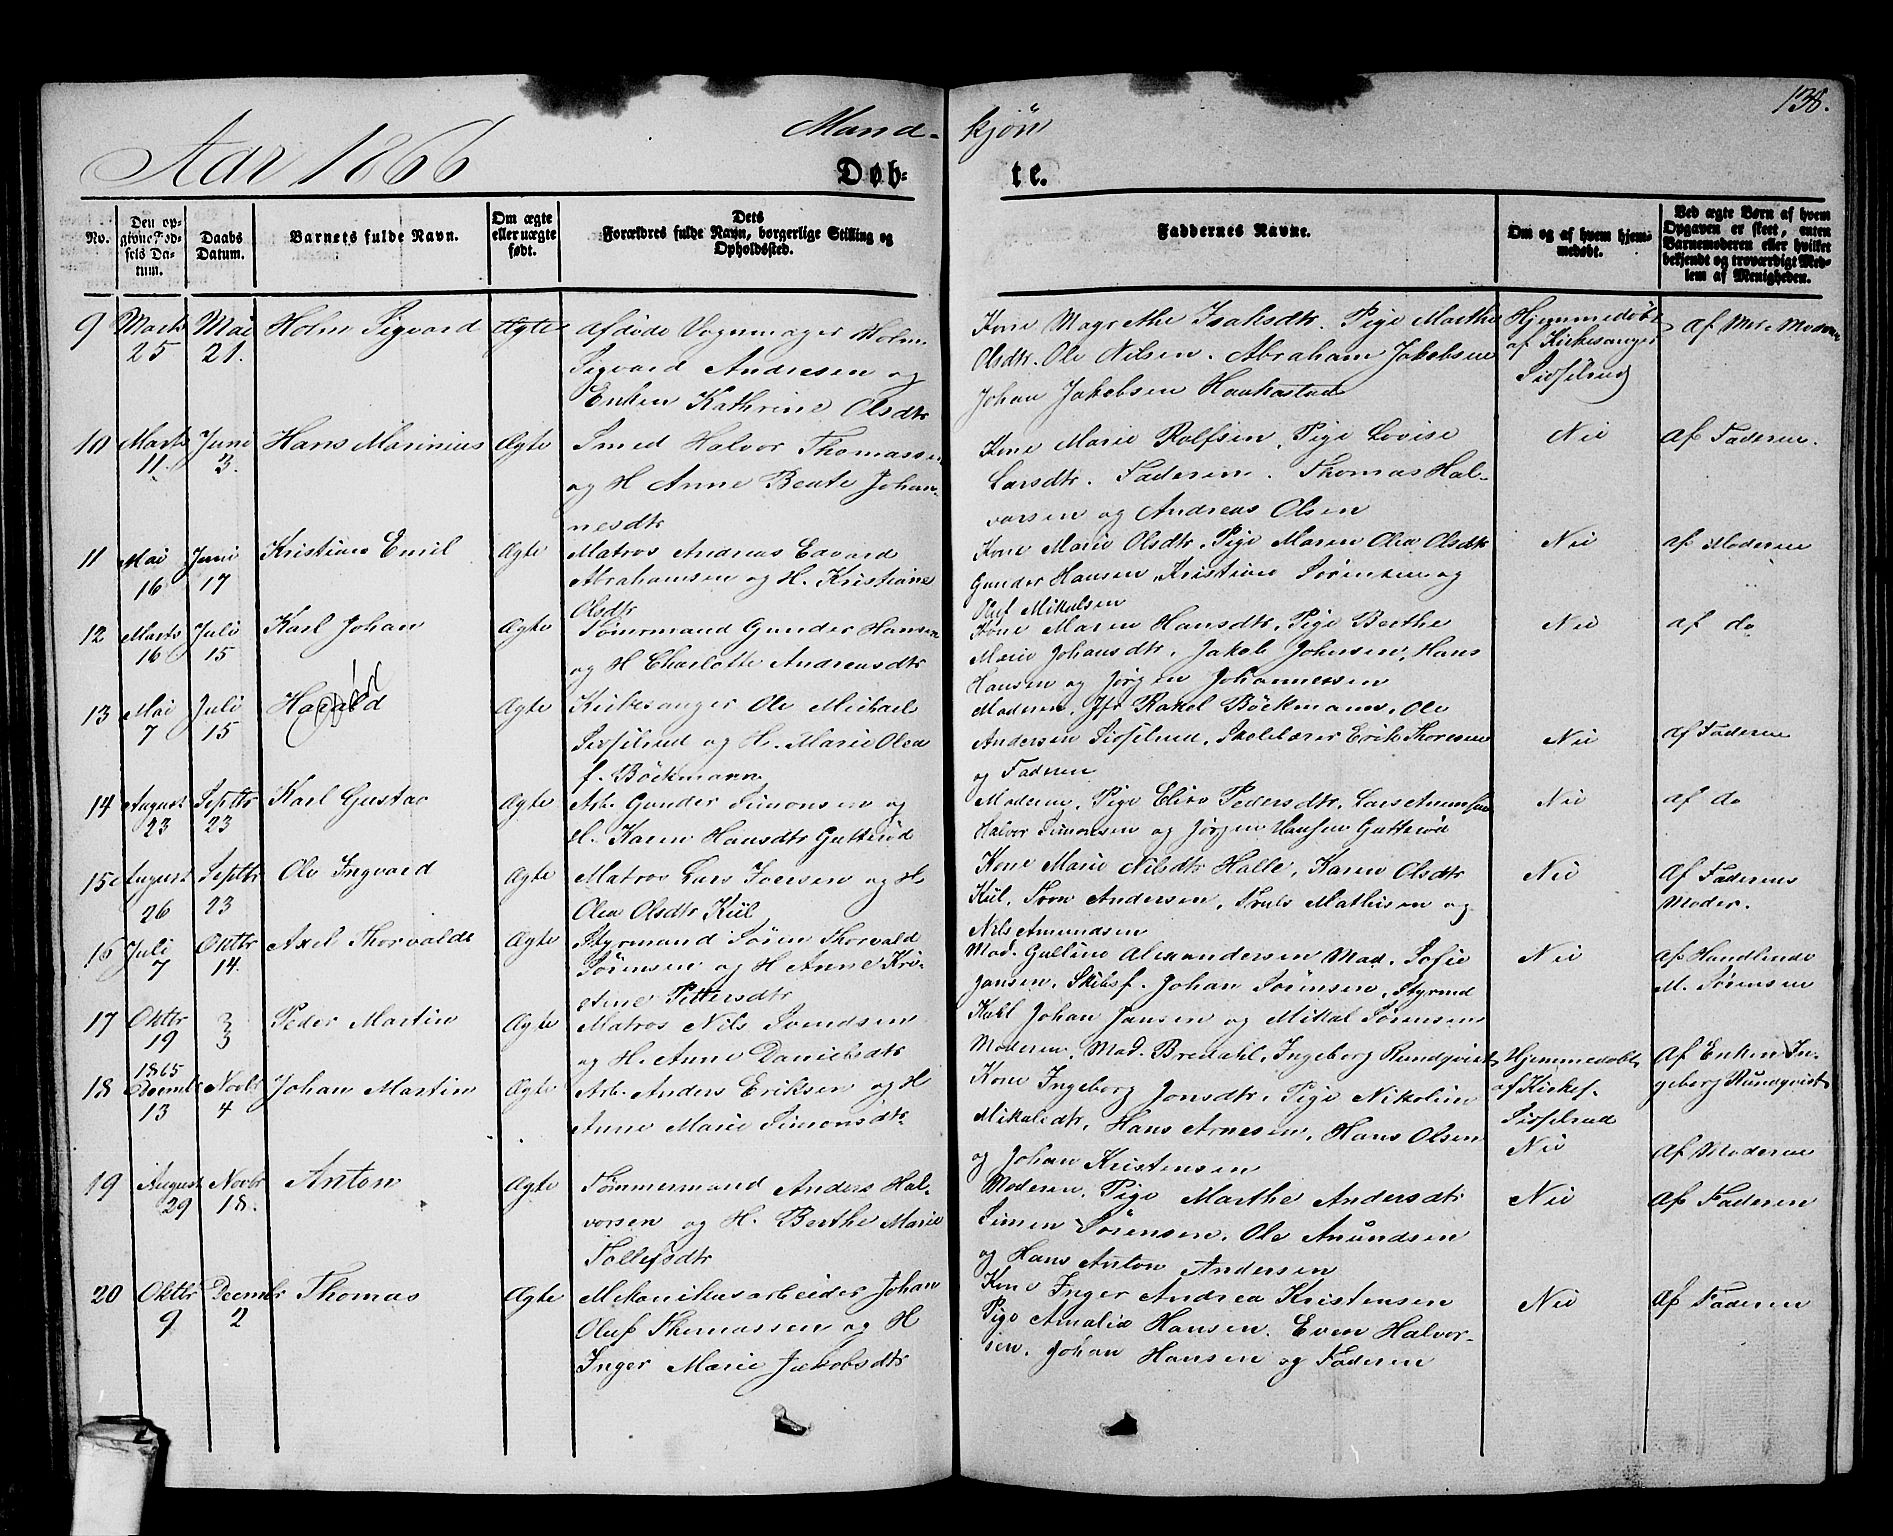 138.
Mand- kjøn
Aar 1866
Døb- te.
No.
Den opgivne Fødsels Datum.
Daabs Datum.
Barnets fulde Navn.
Om ægte eller uægte født.
Dets Forældres fulde Navn, borgerlige Stilling og Opholdssted.
Faddernes Navne.
Om og af hvem hjemmedøbt.
Ved ægte Børn af hvem Opgaven er skeet, enten Barnemoderen eller hvilket bekjendt og troværdigt Medlem af Menigheden.
9 Marts 25 Mai 21. Holm Sigvard Ægte
Afdøde Vognmager Holm
Sigvard Andresen og
Enken Kathrine Olsdtr
Kone Magrethe Isaksdtr. Pige Marthe
Olsdtr. Ole Nilsen. Abraham Jakobsen
Johan Jakobsen Haukastad
Hjemmedøbt
af Kirkesanger
Sidselrud
Af Moderen
10 Marts 11. Juni 3. Hans Marinius Ægte
Smed Halvor Thomassen
og H Anne Beate Johan-
nesdtr
Kone Marie Rolfsen, Pige Lovise
Larsdtr. Faderen. Thomas Hal-
vorsen og Andreas Olsen
Nei
Af Faderen.
11 Mai 16 Juni 17 Kristian Emil Ægte
Matros Andreas Edvard
Abrahamsen og H. Kristiane
Olsdtr
Kone Marie Olsdtr, Pige Maren Olea Olsdtr
Gunder Hansen, Kristian Sørensen og
Mikalsen
Nei
af Moderen
12 Marts 16 Juli 15 Karl Johan Ægte
Tømrmand Gunder Hansen
og H Charlotte Andreasdtr
Kone Maren Hansdtr, Pige Berthe
Marie Johansdtr, Jakob Johnsen, Hans
Hansen og Jørgen Johannessen
Nei
af do
13 Mai 7 Juli 15 Harald Ægte
død
Kirkesanger Ole Michael
Sidselrud og H. Marie Olea
f. Böckmann
Moderen, Jfr Rakel Böckmann, Ole
Andersen Sidselrud, Skolelærer Erik Thoresen
og Faderen
Nei
Af Faderen
14 August 23 Septbr 23 Karl Gustav Ægte
Arb. Gunder Simonsen og
H. Karen Hansdtr Gutterød
Moderen, Pige Elise Pedersdtr, Lars Amundsen
Halvor Simonsen og Jørgen Hansen Gutterød
Nei
af do
15 August 26 Septbr 23 Ole Ingvard Ægte
Matros Lars Iversen og H
Olea Olsdtr Kiil
Kone Marie Nilsdtr Halle, Karen Olsdtr
Kiil, Sven Andersen, Truls Mathisen og
Nils Amundsen
Nei
Af Faderens
Moder.
16 Juli 7 Oktbr 14. Axel Thorvald Ægte
Styrmand Søren Thorvald
Sørensen og H Anne Kri-
stine Pettersdtr
Mad. Gulline Alexandersen Mad. Sofie
Jansen, Skibsf. Johan Sørensen, Styrmd
Karl Johan Jansen og Mikal Sørensen
Nei
af Handlende
M. Sørensen
17 Oktbr 19 1865 Peder Martin Ægte
Matros Nils Svendsen
og H. Anne Danielsdtr
Moderen, Mad. Bredahl, Ingeborg Rundqvist
Hjemmedøbt
af Kirkes.
Sidselrud
Af Enken In-
geborg Rundqvist
18 Decmbr 13 Novbr 4 Johan Martin Ægte
Arb. Anders Eriksen og H
Anne Marie Simonsdtr
Kone Ingeborg Jonsdtr, Pige Nikoline
Mikalsdtr, Hans Arnesen, Hans Olsen
og Johan Kristensen
Nei
Af Moderen
19 August 29 Novbr 18. Anton Ægte
Tømmermand Anders Hal-
vorsen og H. Berthe Marie
Tollefsdtr
Moderen, Pige Marthe Andersdtr
Simen Sørensen, Ole Amundsen
og Hans Anton Andersen
Nei
Af Faderen
20 Oktbr 9 Decmbr 2 Thomas Ægte
Mekanikusarbeider Johan
Oluf Thomassen og H
Inger Marie Jakobsdtr
Kone Inger Andrea Kristensen
Pige Amalia Hansen. Even Halvor-
sen, Johan Hansen og Faderen
Nei
Af Faderen